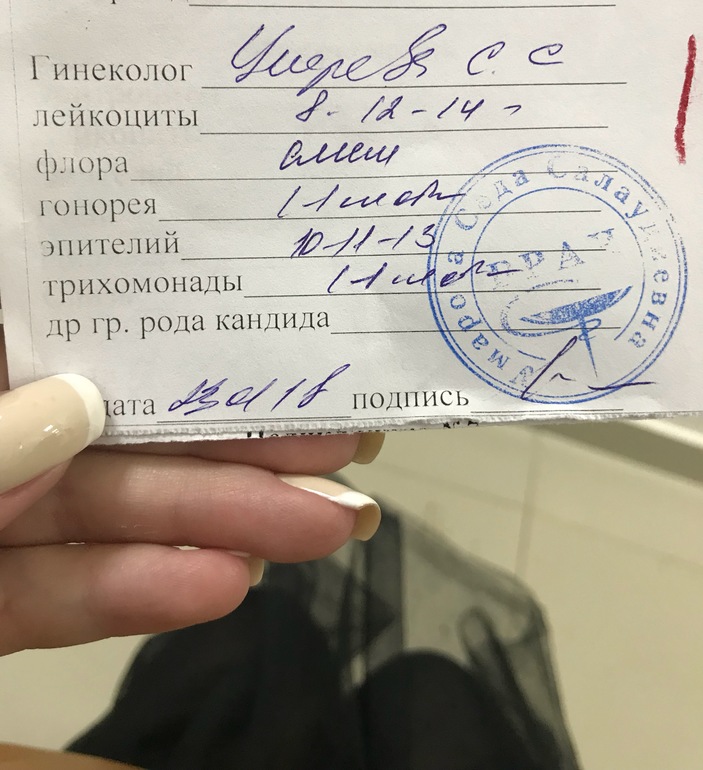 Гинеколог Умарова С. С
лейкоциты 8-12-14-
флора смеш
гонорея (-) мот
эпителий 10-11-13
трихомонады (-) мот
др гр. рода кандида
дата подпись
Умарова Седа Салаудиевна
ВРАЧ